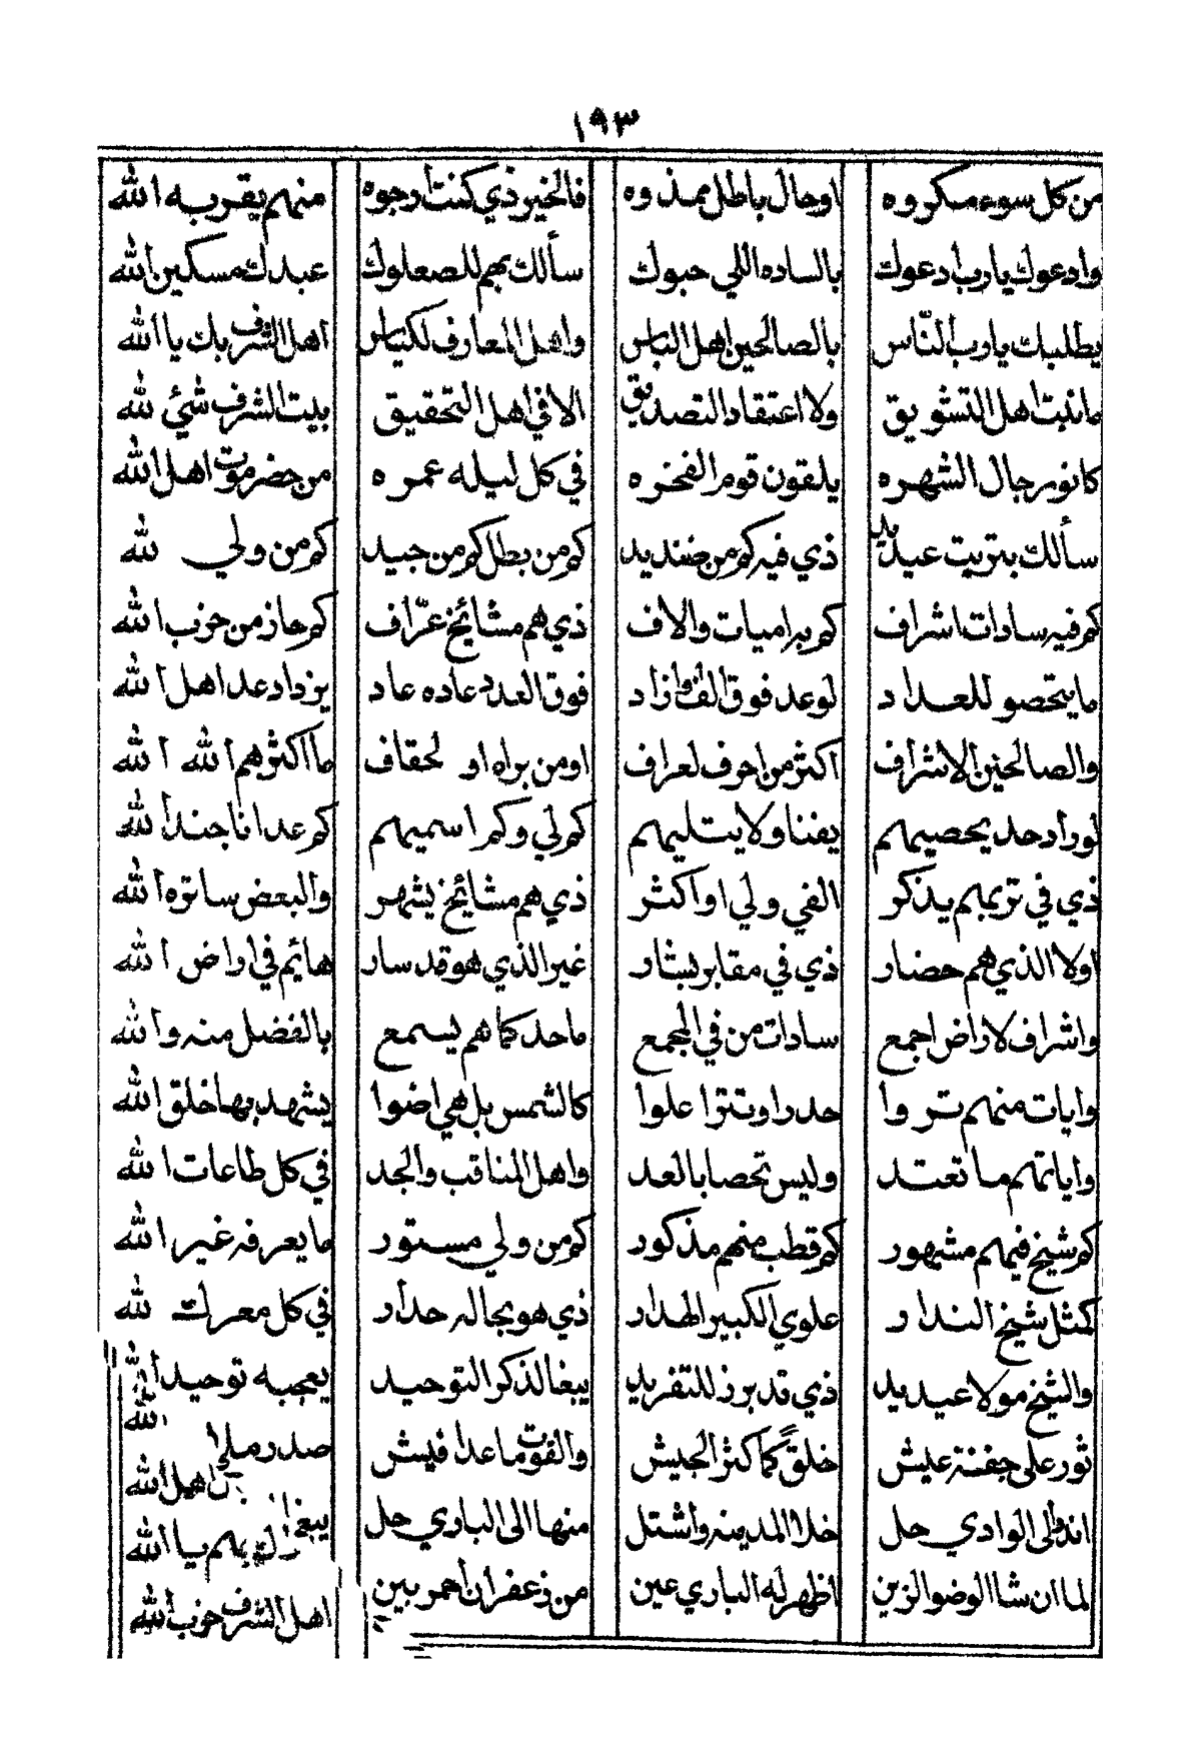 ١٩٣
من كل سوء مكروه اوحال باطل ممذوه فالخير ذي كنت ارجوه منهم يقربه الله
وادعوك يارب ادعوك بالساده اللي حبوك سألك بهم للصعلوك عبدك مسكين الله
يطلبك يارب النّاس بالصالحين اهل الباس واهل المعارف لكياس اهل الشرف بك يا الله
مانبت اهل التشويق ولا اعتقاد التصديق الا في اهل التحقيق بيت الشرف شئ لله
كانو رجال الشهره يلقون قوم الفخره في كل ليله عمره من حضرموت اهل الله
سألك بتربت عيديد ذي فيه كم من ضنديد كم من بطل كم من جيد كم من ولي لله
كم فيه سادات اشراف كم برا ميات والاف ذي هم مشائخ عرّاف كم حاز من حزب الله
مايتحصو للعداد لو عد فوق الف وازاد فوق العدد عاده عاد يزداد عد اهل الله
والصالحين الاشراف اكثر من احرف لعراف او من براه او لحقاف ما اكثرهم الله الله
لو راد حد يحصيهم يفنا ولا يتليهم كم لي وكم اسميهم كم عدانا جند الله
ذي في تربهم يذكر الفي ولي او اكثر ذي هم مشائخ يشهر والبعض ساتره الله
اولا الذي هم حضار ذي في مقابر بشار غير الذي هو قد سار هايم في اراض الله
واشراف لاراض اجمع سادات من في المجمع ماحد كما هم يسمع بالفضل منه والله
وايات منهم تروا حدرا وتترا علوا كالشمس بل هي اضوا يشهد بها خلق الله
واياتهم ماتعتد وليس تحصا بالعد واهل المناقب والجد في كل طاعات الله
كم شيخ فيهم مشهور كم قطب منهم مذكور كم من ولي مستور مايعرفه غير الله
كمثل شيخ الندار علوي الكبير الهدار ذي هو بحاله حدار في كل معرك لله
والشيخ مولا عيديد ذي قد برز للتفريد يبغا لذكر التوحيد يعجبه توحيد الله
ثور على جفنة عيش خلقٍ كما كثر الجيش والقوت ماعدا فيش صدر ملا الله
اندا لى الوادي حل خلا المدينه واشتل منها الى الباري حل يبغا اهل الله
لما ان شا الوضو الزين اظهر له الباري عين من زعفران احمر بين بهم يا الله
اهل الشرف حزب الله